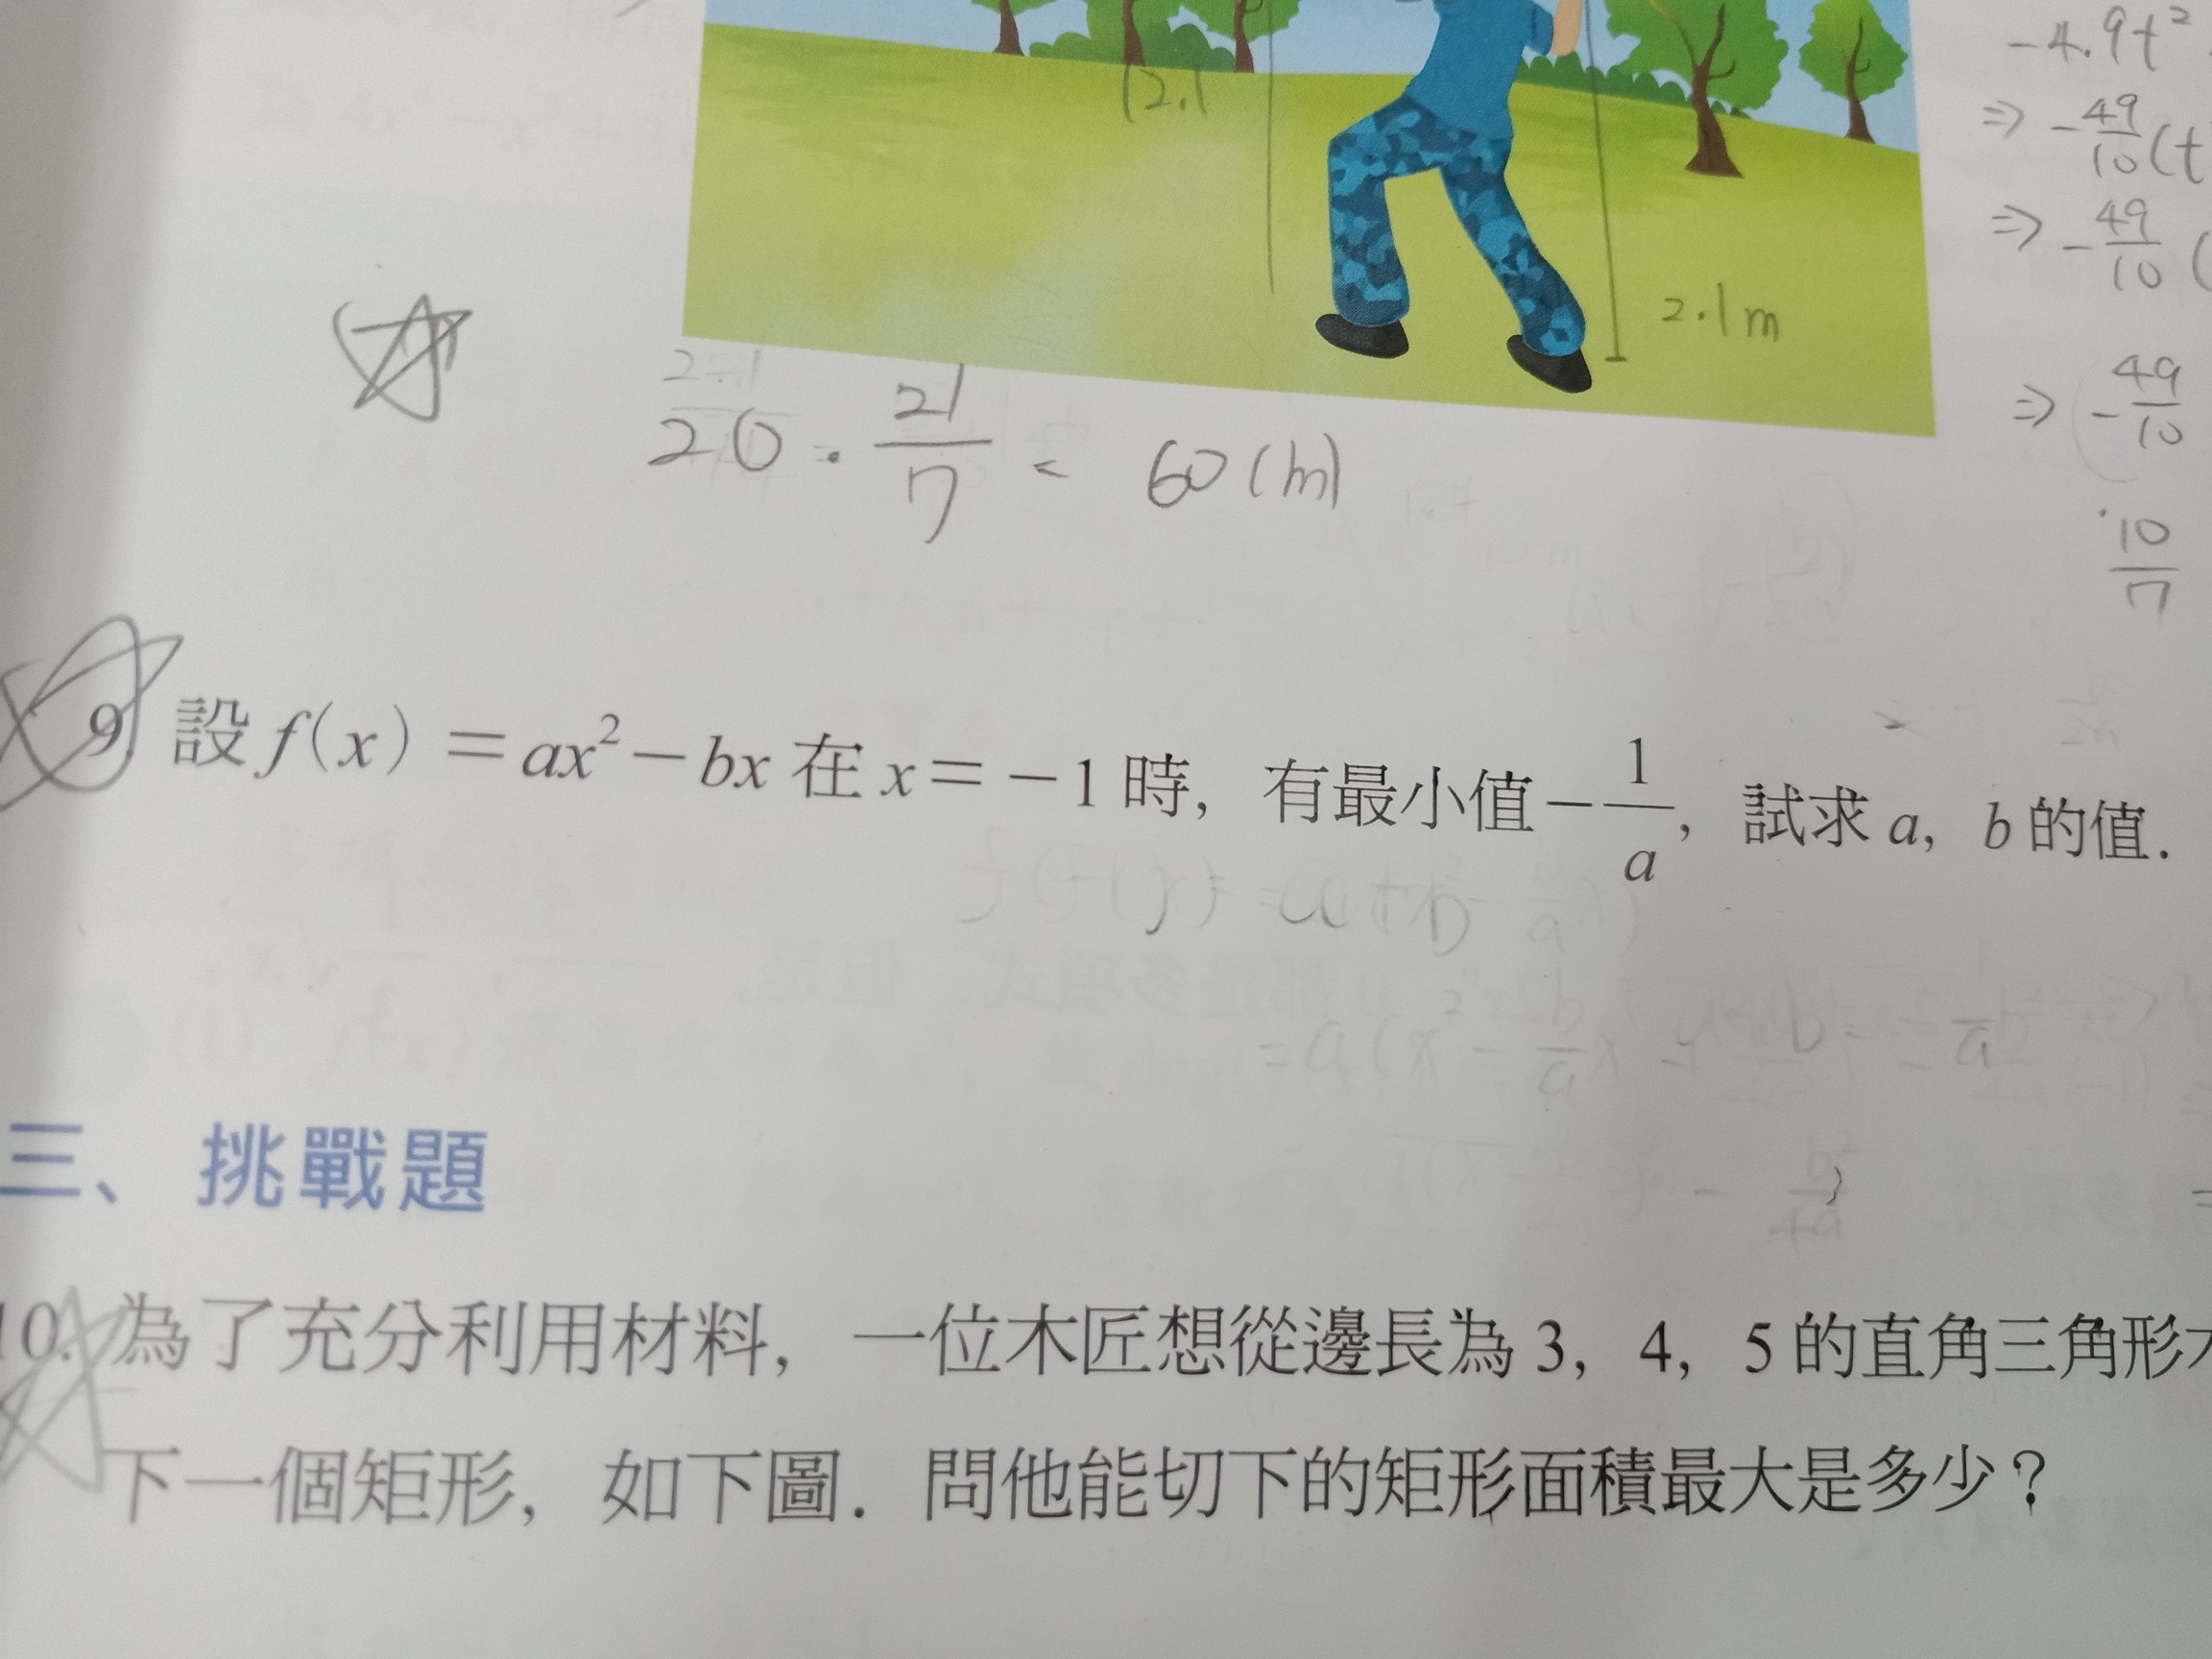 -4.9t²
12.1
⇒ -49/10(t
⇒ -49/10 (
2.1m
⇒ -49/10
20 · 21/7 = 60(m)
10/7
9. 設 f(x) = ax² - bx 在 x = -1 時，有最小值 -1/a，試求 a, b 的值.
三、挑戰題
10. 為了充分利用材料，一位木匠想從邊長為 3，4，5 的直角三角形
下一個矩形，如下圖．問他能切下的矩形面積最大是多少？